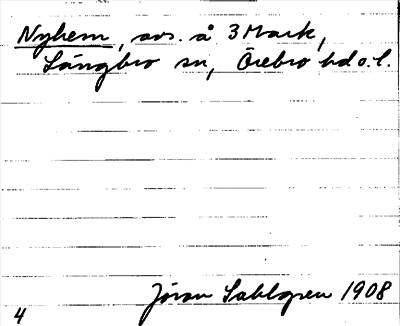 Nyhem, avs. å 3 Mark,
Långbro sn, Örebro hd o. l.
Jöran Sahlgren 1908
4